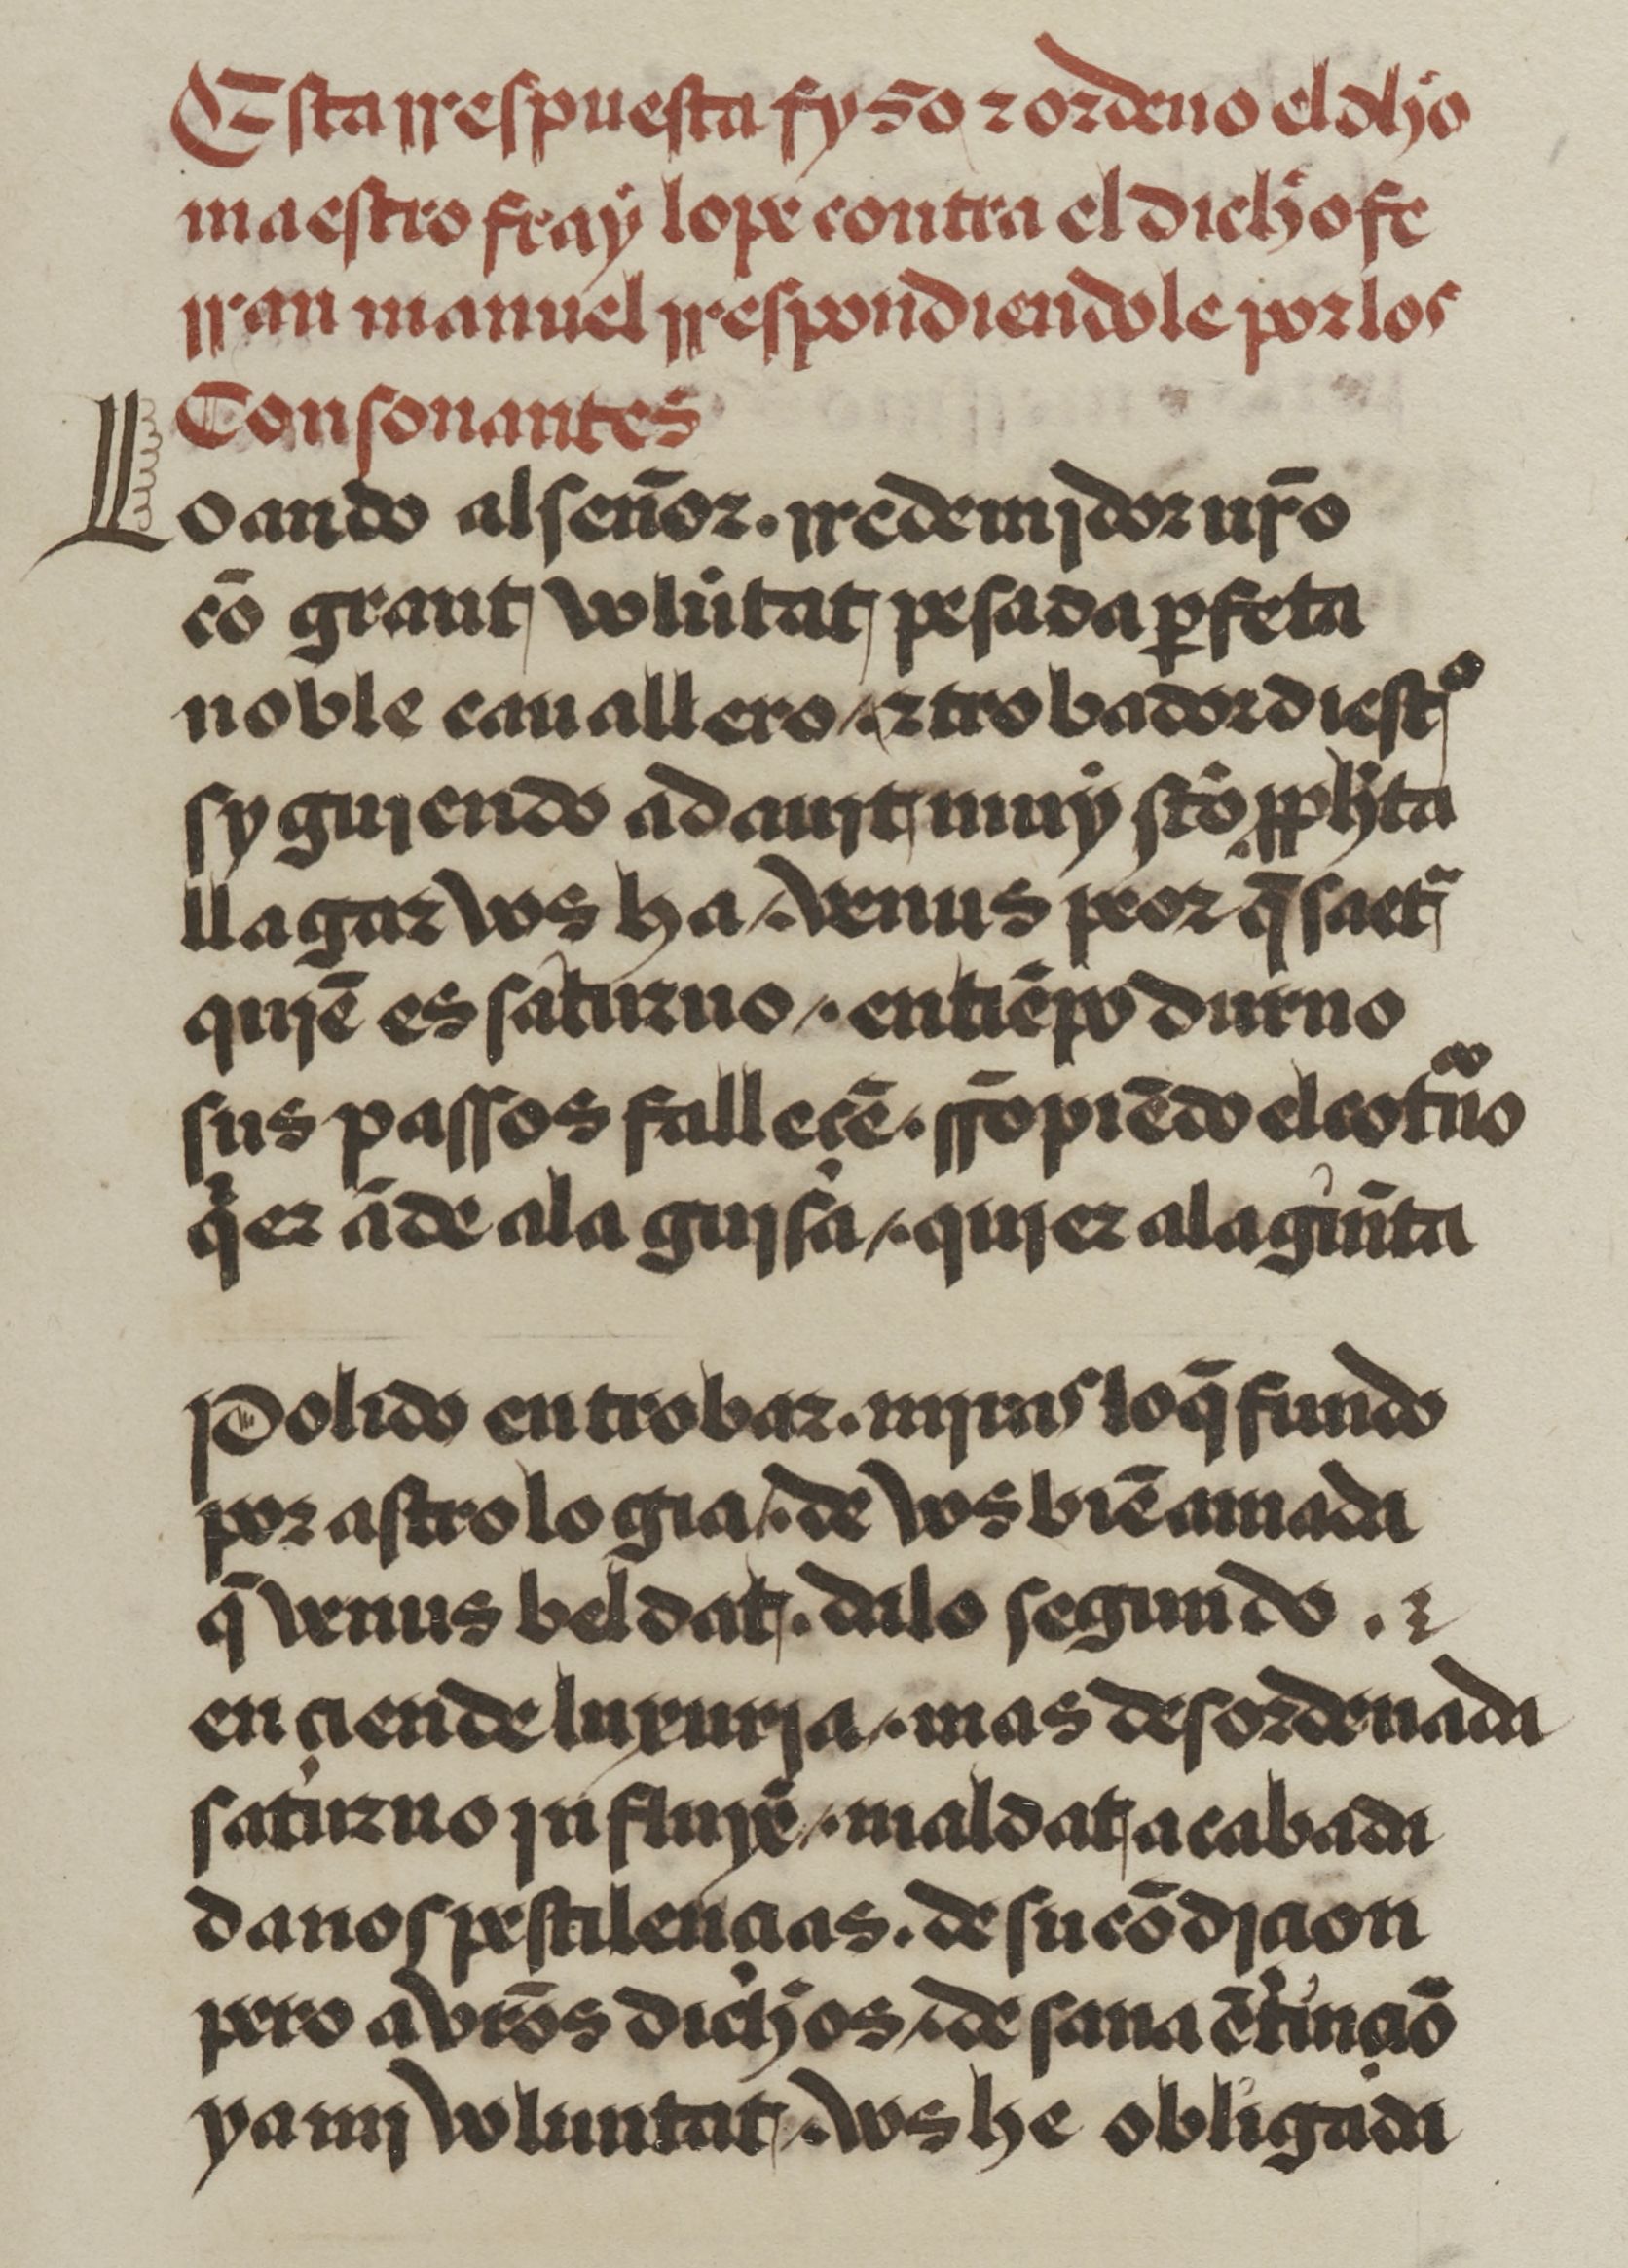 Esta rrespuesta fyso τ ordeno el dho
maestro fray lope contra el dicho fe
rran manuel rrespondiendole por los
Consonantes
Loando al señor . rredemjdor nr̄o
cō grant volūtat pesada ꝑfeta
noble cauallero /. τ trobador diestͦ
syguiendo a dauit muy sc̄o ꝓph̄ta
llagar vos ha /. venus peor q̄ saetᵃ
qujē es saturno /. en tiēpo diurno
sus passos falleçē . rrōpiēdo el cotͧno
q̄er āde ala guisa /. qujer ala gin̄ta
Polido en trobar . mjras lo q̄ fundo
por astrologia /. de vos biē amada
q̄ venus beldat . dalo segundo . τ
ençiende luxurja /. mas desordenada
saturno jnfluye /. maldat acabada
danos pestilençias . de su cōdjçion
pero a vr̄os dichos /. de sana ētinçiō
ya mj voluntat /. vos he obligada